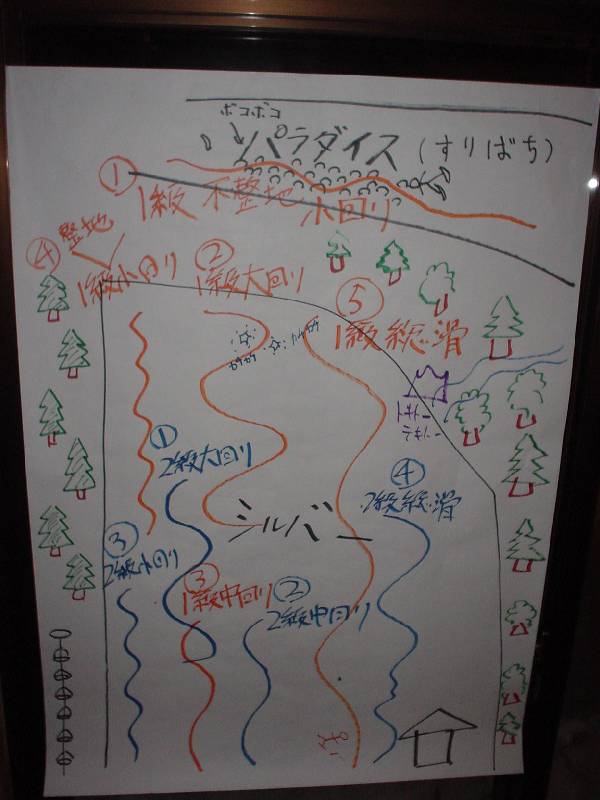 ボコボコ
パラダイス (すりばち)
① 1級 不整地 小回り
整地
④ 1級小回り
② 1級大回り
⑤ 1級総滑
① 2級大回り
④ 2級総滑
シルバー
③ 2級小回り
③ 1級中回り
② 2級中回り